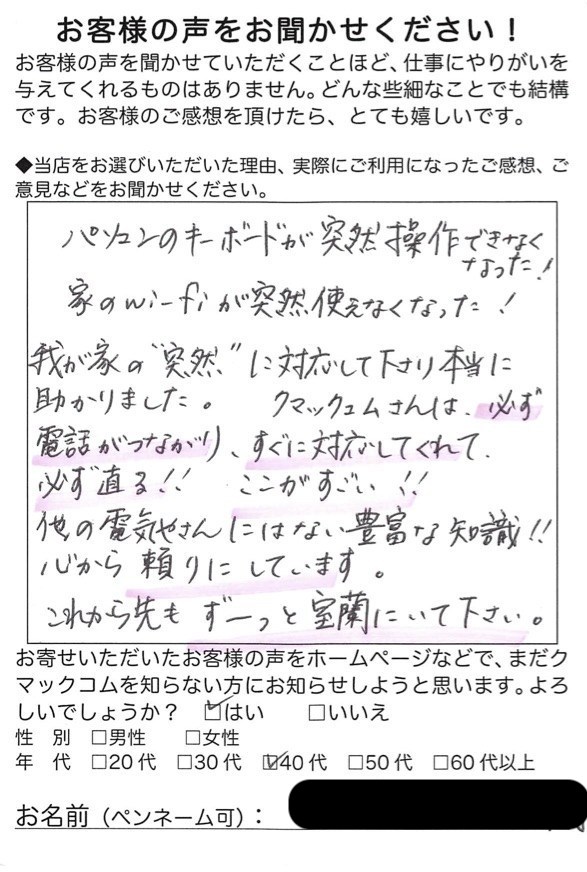 お客様の声をお聞かせください！
お客様の声を聞かせていただくことほど、仕事にやりがいを
与えてくれるものはありません。どんな些細なことでも結構
です。お客様のご感想を頂けたら、とても嬉しいです。
◆当店をお選びいただいた理由、実際にご利用になったご感想、ご
意見などをお聞かせください。
パソコンのキーボードが突然操作できなく
なった！
家のwi-fiが突然使えなくなった！
我が家の“突然”に対応して下さり本当に
助かりました。 クマックコムさんは、必ず
電話がつながり、すぐに対応してくれて、
必ず直る!! ここがすごい!!
他の電気やさんにはない豊富な知識!!
心から頼りにしています。
これから先もずーっと室蘭にいて下さい。
お寄せいただいたお客様の声をホームページなどで、まだク
マックコムを知らない方にお知らせしようと思います。よろ
しいでしょうか？ ☑はい □いいえ
性 別 □男性 □女性
年 代 □20代 □30代 ☑40代 □50代 □60代以上
お名前（ペンネーム可）：